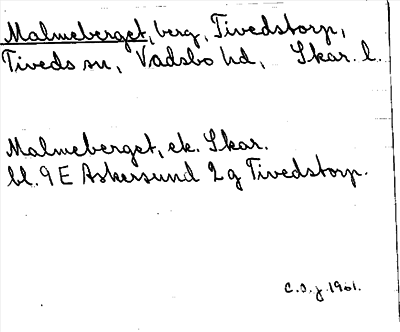 Malmeberget, berg, Tivedstorp,
Tiveds sn, Vadsbo hd, Skar. l.
Malmeberget, ek. Skar.
bl. 9E Askersund 2g Tivedstorp.
C.S.J. 1961.